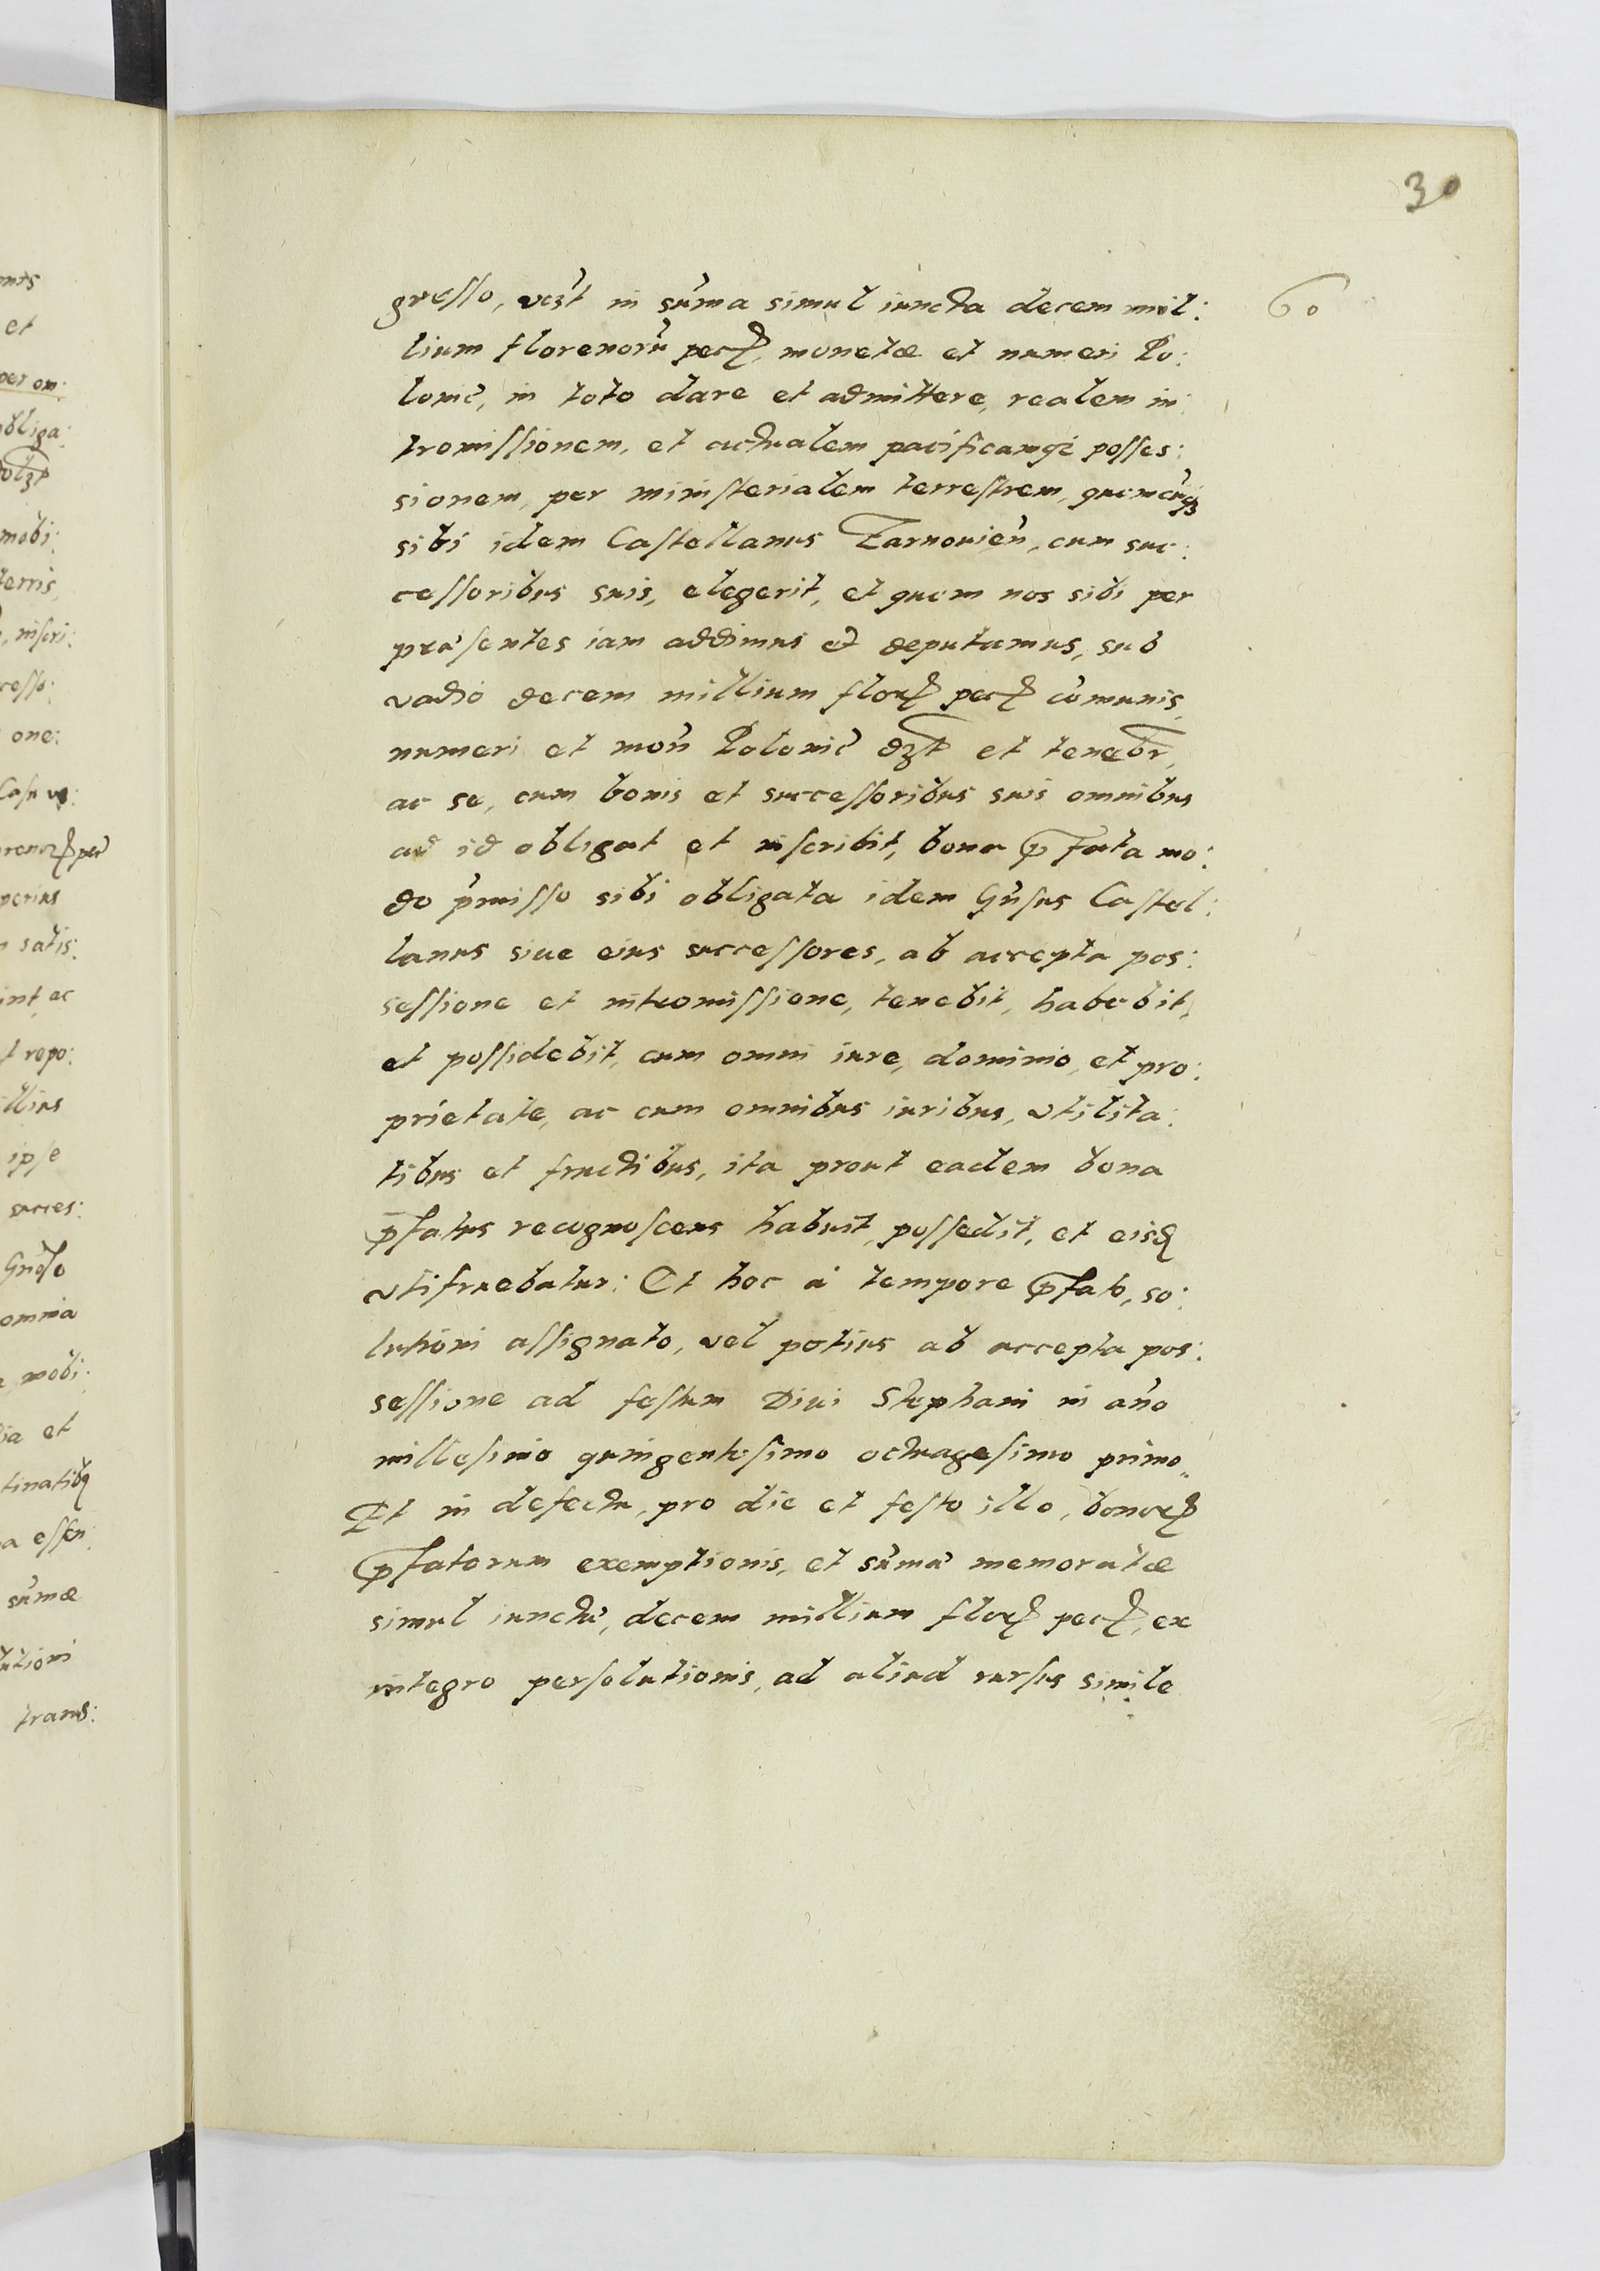 30
60
gresso, vczt in suma simul iuncta decem mil:
lium florenorũ pecz, monetæ et numeri Po:
lonic, in toto dare et admittere, realem in:
tromissionem, et actualem pacificamqz posses:
sionem, per ministerialem terrestrem, quemcũqz
sibi idem Castellanus Tarnouien, cum suc:
cessoribus suis, elegerit, et quem nos sibi per
præsentes iam addimus et deputamus, sub
vadio decem millium florz pecz comunis
numeri et mon Polonic dzt et tenebr,
ac se, cum bonis et successoribus suis omnibus
ad id obligat et inscribit, bona pfata mo:
do pmisso sibi obligata idem Gnsus Castel:
lanus siue eius successores, ab accepta pos:
sessione et intromissione, tenebit, habebit,
et possidebit, cum omni iure, dominio, et pro:
prietate, ac cum omnibus iuribus, vtilita:
tibus et fructibus, ita prout eadem bona
pfatus recognoscens habuit, possedit, et eisq
vtifruebatur: Et hoc à tempore pfato, so:
lutioni assignato, vel potius ab accepta pos:
sessione ad festum Diui Stephani in año
millesimo quingentesimo octuagesimo primo.
Et in defectu, pro die et festo illo, bonorz
pfatorum exemptionis, et sumæ memoratæ
simul iunctæ, decem millium florz pecz, ex
integro persolutionis, ad aliud rursus simile